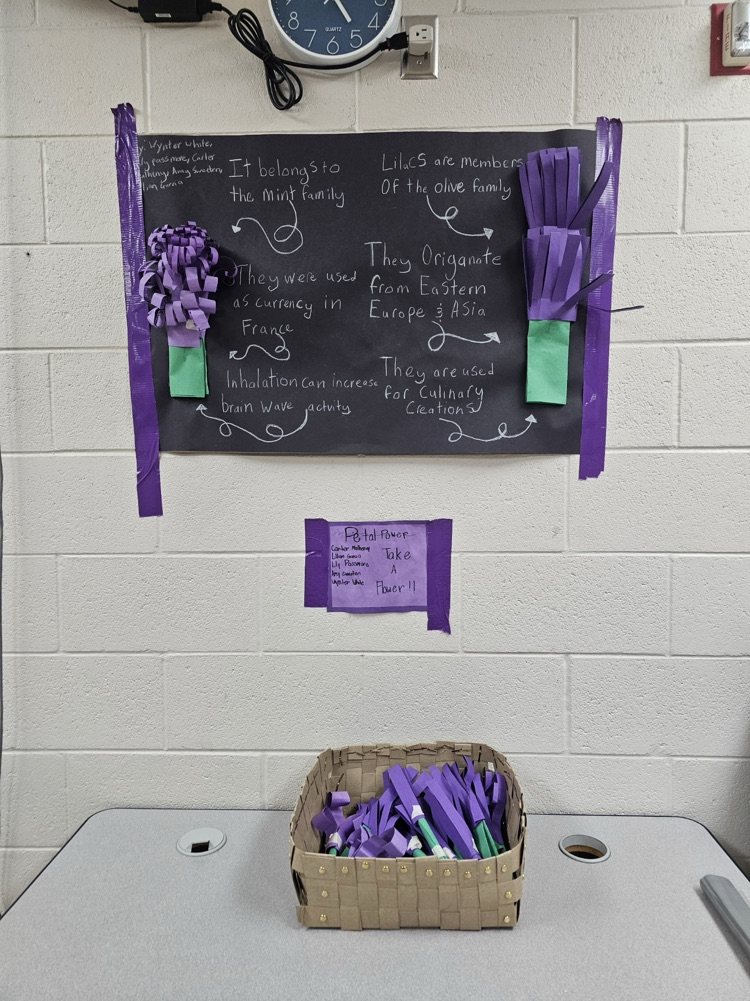 8
7
6
5
4
QUARTZ
By: Wynter White,
Lily Passmore, Carter
Matheny, Amy Sweeten
Lilian Garcia
It belongs to
the mint family
They were used
as currency in
France
Inhalation can increase
brain wave activity
Lilacs are members
Of the olive family
They Origanate
from Eastern
Europe & Asia
They are used
for Culinary
Creations
Petal Power
Carter Matheny
Lilian Garcia
Lily Passmore
Amy Sweeten
Wynter White
Take
A
Flower!!